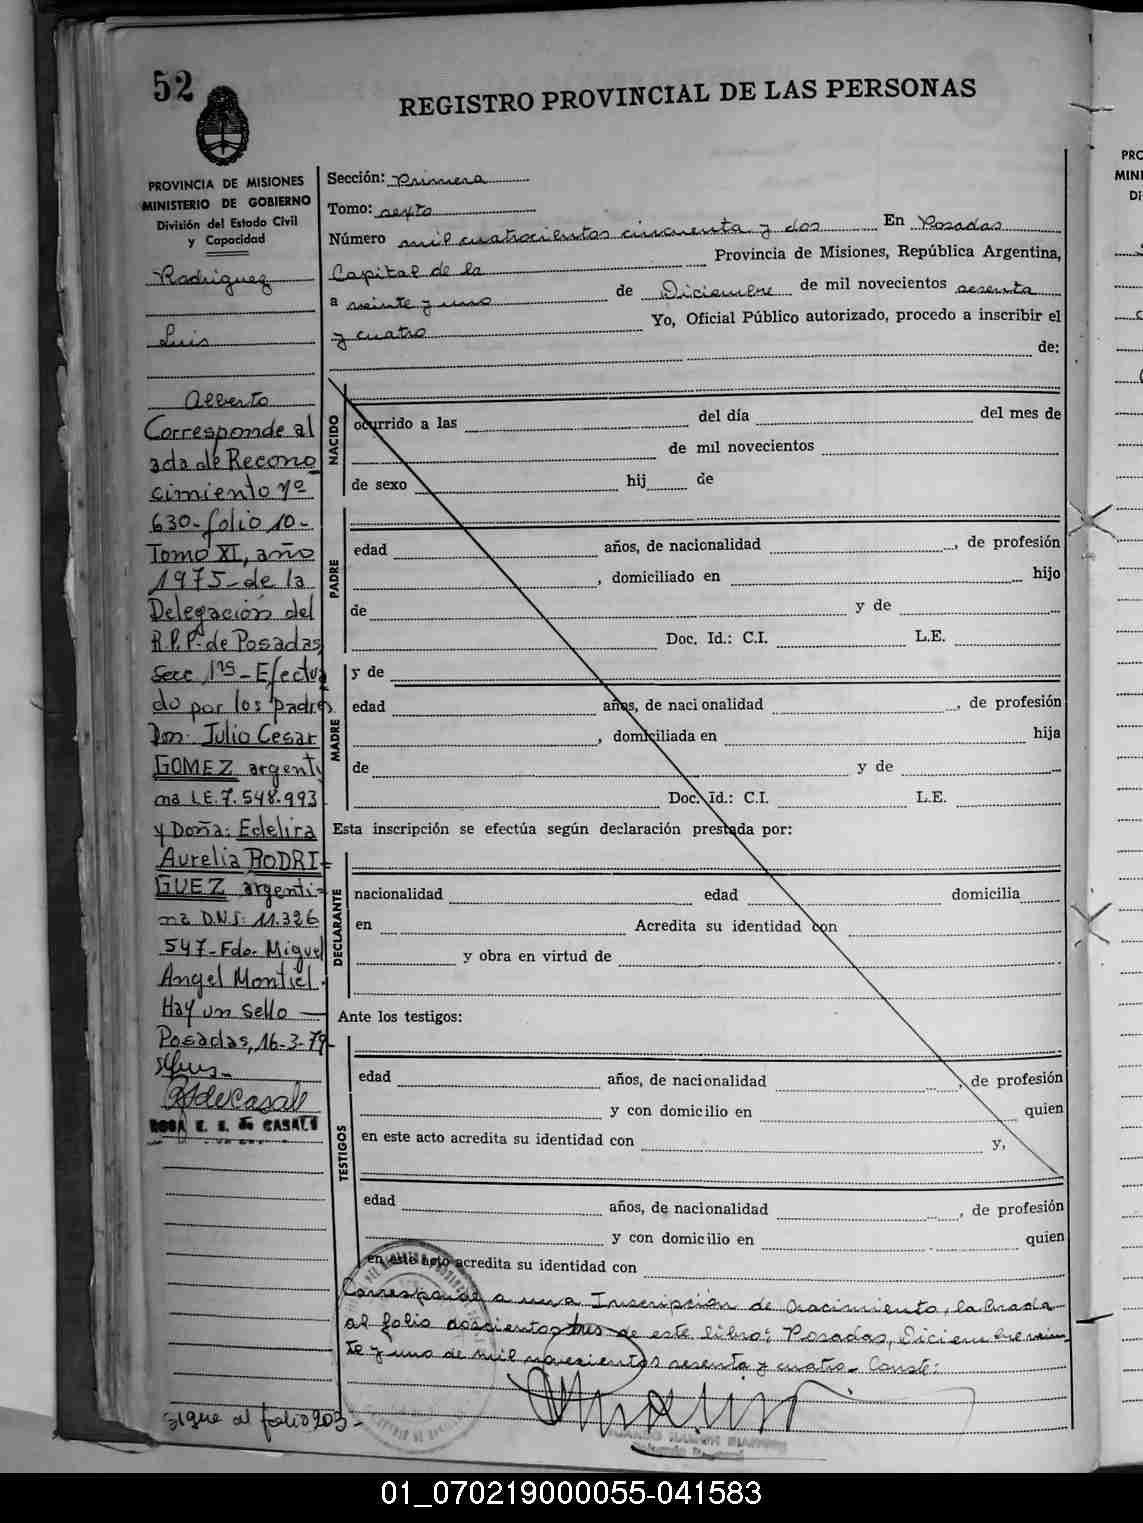 52
REGISTRO PROVINCIAL DE LAS PERSONAS
PROVINCIA DE MISIONES
MINISTERIO DE GOBIERNO
División del Estado Civil
y Capacidad
Rodriguez
Luis
Alberto
Corresponde al
acta de Recono
cimiento Nº
630-folio 10-
Tomo XI, año
1975-de la
Delegación del
R.P.P. de Posadas
Secc 1ra-Efectua
do por los padres
Don. Julio Cesar
GOMEZ argenti
na L.E. 7.548.993
y Doña: Edelira
Aurelia RODRI-
GUEZ argenti-
na D.N.I: 11.326
547-Fdo. Miguel
Angel Montiel.
Hay un sello
Posadas, 16-3-79-
ROSA E. S. de CASALS
sigue al folio 203-
Sección: Primera
Tomo: sexto
Número mil cuatrocientos cincuenta y dos En Posadas
Capital de la Provincia de Misiones, República Argentina,
a veinte y uno de Diciembre de mil novecientos sesenta
y cuatro Yo, Oficial Público autorizado, procedo a inscribir el
de:
NACIDO
ocurrido a las del día del mes de
de mil novecientos
de sexo hij de
PADRE
edad años, de nacionalidad , de profesión
, domiciliado en hijo
de y de
Doc. Id.: C.I. L.E.
MADRE
y de
edad años, de nacionalidad , de profesión
, domiciliada en hija
de y de
Doc. Id.: C.I. L.E.
Esta inscripción se efectúa según declaración prestada por:
DECLARANTE
nacionalidad edad domicilia
en Acredita su identidad con
y obra en virtud de
Ante los testigos:
TESTIGOS
edad años, de nacionalidad , de profesión
y con domicilio en quien
en este acto acredita su identidad con y,
edad años, de nacionalidad , de profesión
y con domicilio en quien
en este acto acredita su identidad con
Corresponde a una Inscripción de Nacimiento, labrada
al folio doscientos tres de este libro; Posadas, Diciembre vein-
te y uno de mil novecientos sesenta y cuatro- Conste:
PRO
MINI
Di
01_070219000055-041583